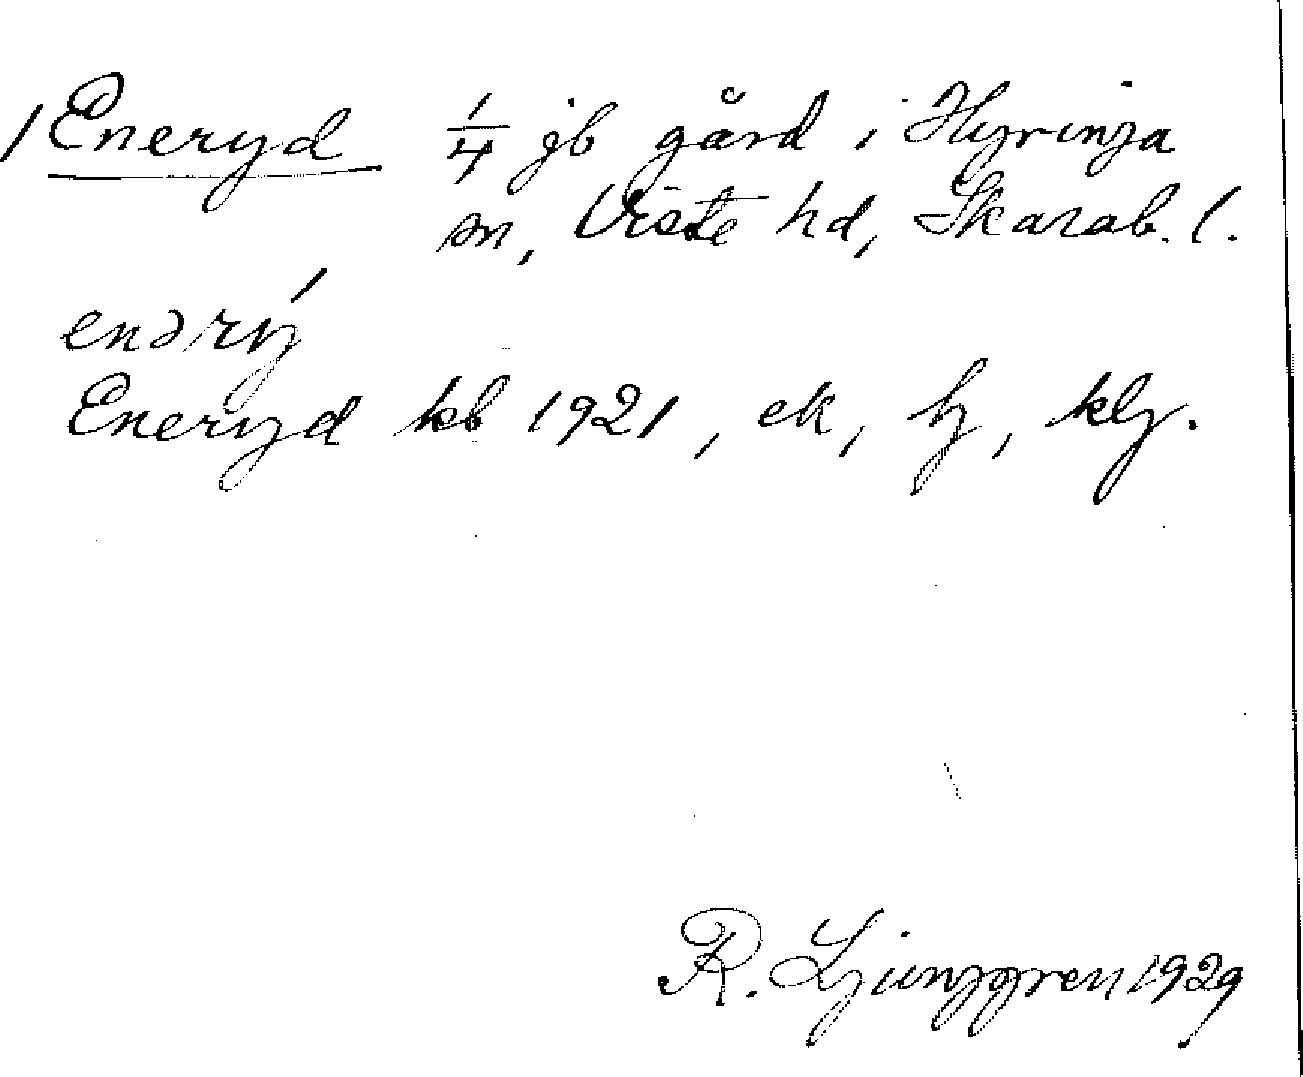 /Eneryd 1/4 jb gård i Hyringa
sn, Viste hd, Skarab. l.
enərý
Eneryd kb 1921, ek, hj, klj.
R. Ljunggren 1929